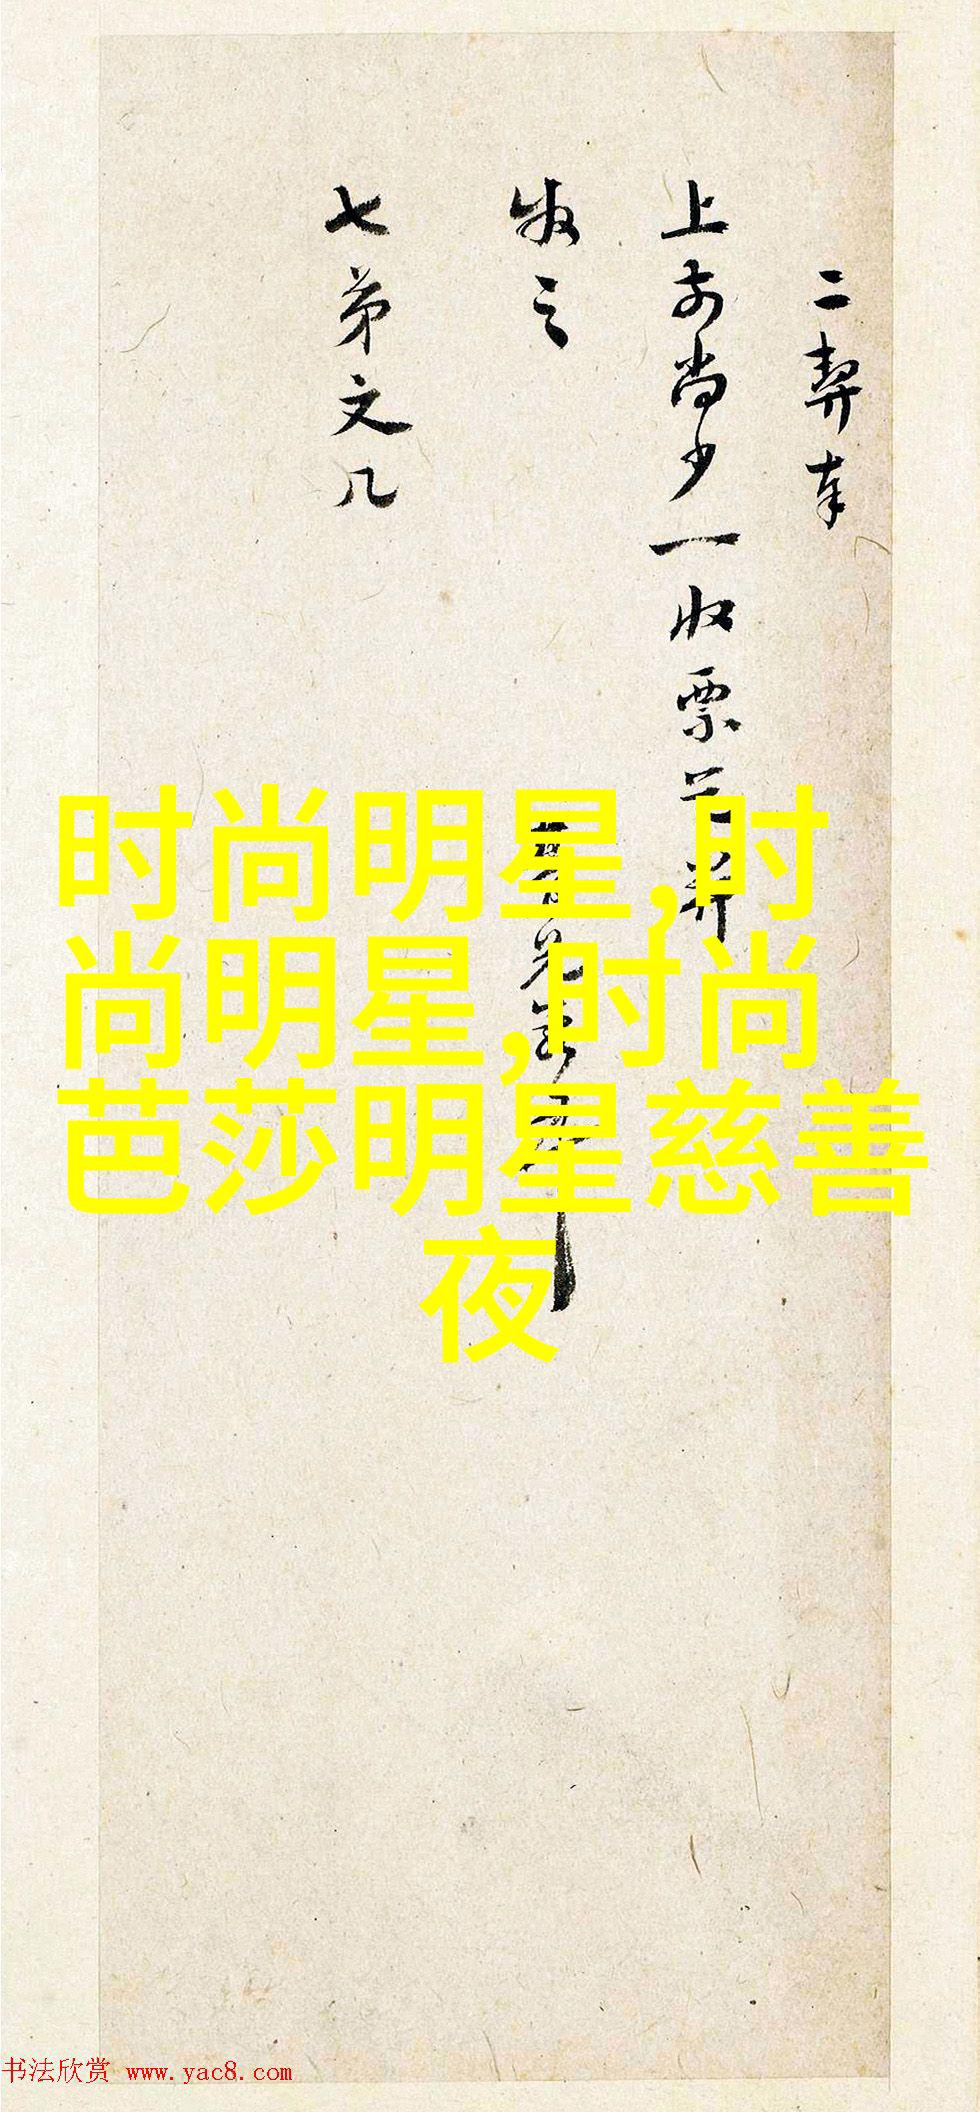 二契奉
上前尚少一收票足并
收之
七弟文几
时尚明星,时
尚明星,时尚
芭莎明星慈善
夜
书法欣赏 www.yac8.com